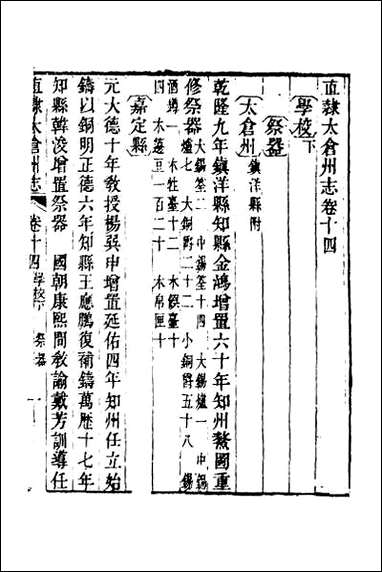 直隸太倉州志卷十四
學校下
祭器
太倉州 鎮洋縣附
乾隆九年鎮洋縣知縣金鴻增置六十年知州鰲圖重
修祭器 大錫簠二 中錫簠十四 大錫爐一 中錫
爐七 大銅爵二十二 小銅爵五十八 錫
酒罇一 木牲臺十二 木饌臺十
四 木籩豆一百二十 木帛匣十
嘉定縣
元大德十年教授楊巽申增置延佑四年知州任立始
鑄以銅明正德六年知縣王應鵬復補鑄萬歷十七年
知縣韓浚增置祭器 國朝康熙間敎諭戴芳訓導任
直隸太倉州志 卷十四 學校下 祭器 一